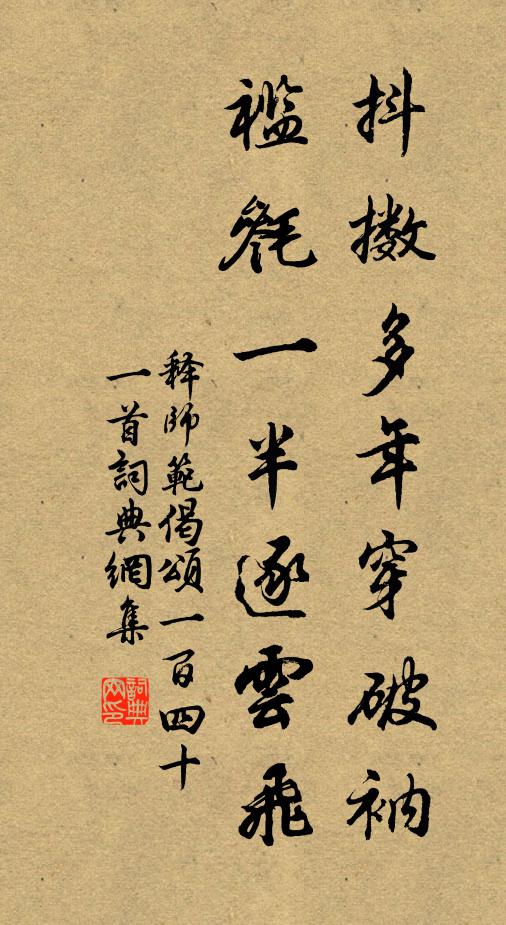 抖擻多年穿破衲
襤毿一半逐雲飛
释師範偈頌一百四十
一首詞典網集
詞典
网印